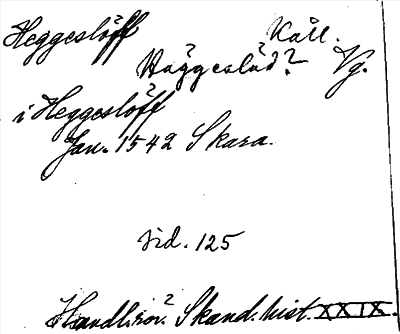 Heggeslöff Kåll.
Häggeslöd? Vg.
i Heggeslöff
Jan. 1542 Skara.
sid. 125
Handl. rör. Skand. hist. XXIX.